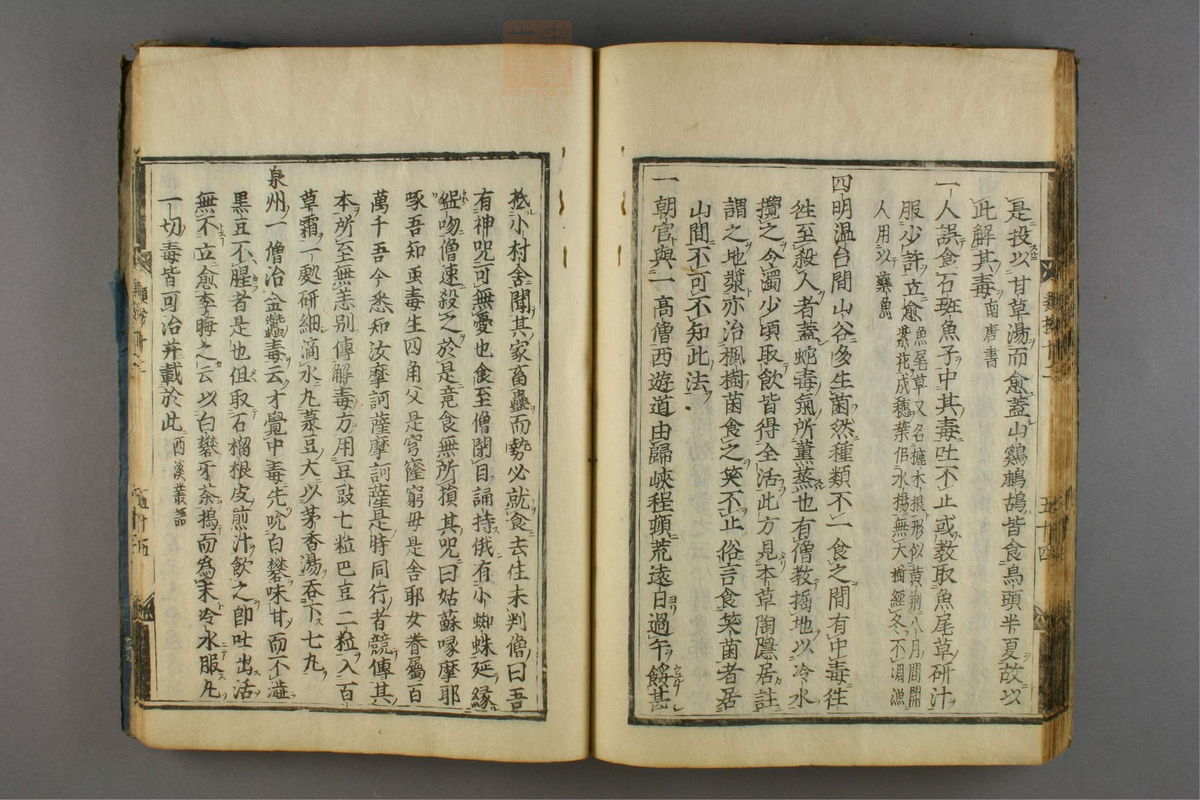 是投以甘草湯而愈蓋山鷄鷓鴣皆食烏頭半夏故以
此解其毒南唐書
一人誤食石斑魚子中其毒吐不止或教取魚尾草研汁
服少許立愈魚尾草又名樚木根形似黃荆八月間開
紫花成穗葉佀水楊無大樹經冬不凋漁
人用以藥魚
四明温台間山谷多生菌然種類不一食之間有中毒往
徃至殺人者蓋蛇毒氣所薫蒸也有僧教掘地以冷水
攪之令濁少頃取飲皆得全活此方見本草陶隱居註
謂之地漿亦治楓樹菌食之笑不止俗言食笑菌者居
山間不可不知此法
一朝官與一高僧西遊道由歸峽程頓荒遠日過午餒甚
五十四
抵小村舍聞其家畜蠱而勢必就食去住未判僧曰吾
有神咒可無憂也食至僧閉目誦持俄有小蜘蛛延緣
盌吻僧速殺之於是竟食無所損其咒曰姑蘇啄摩耶
啄吾知蠱毒生四角父是穹窿窮母是舍耶女眷屬百
萬千吾今悉知汝摩訶薩摩訶薩是時同行者競傳其
本所至無恙别傳解毒方用豆豉七粒巴豆二粒入百
草霜一處研細滴水丸菉豆大以茅香湯吞下七丸
泉州一僧治金蠶毒云才覺中毒先吮白礬味甘而不澁
黒豆不腥者是也但取石榴根皮煎汁飲之卽吐出活
無不立愈李晦之云以白礬牙茶搗而為末冷水服凡
一切毒皆可治并載於此西溪叢語